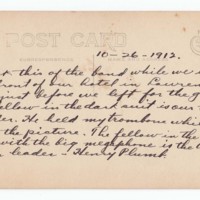 POST CARD
10-26-1912.
this of the band while we
front of our hotel in Lawren
just before we left for the g
fellow in the dark suit is our
er. He held my trombone whi
the picture. The fellow in the
with the big megaphone is the
leader - Henry Plumb.